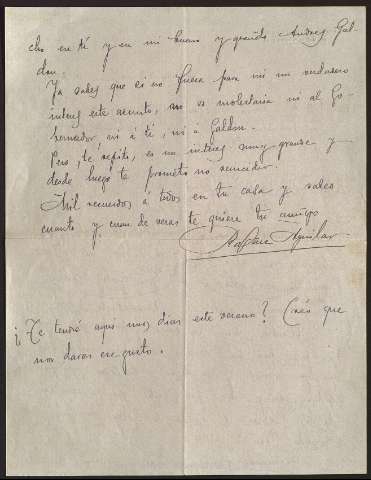 cho en tí y en mi bueno y grande Andres Gal-
don.
Ya sabes que si no fuera para mi un verdadero
interes este asunto, no os molestaria ni al Go-
bernador, ni á tí, ni á Galdon.
Pero, te repito, es un interes muy grande y
desde luego te prometo no reincidir.
Mil recuerdos á todos en tu casa y sabes
cuanto y cuan de veras te quiere tu amigo
Aguilar
¿Te tendré aqui unos dias este verano? Creés que
nos darás ese gusto.